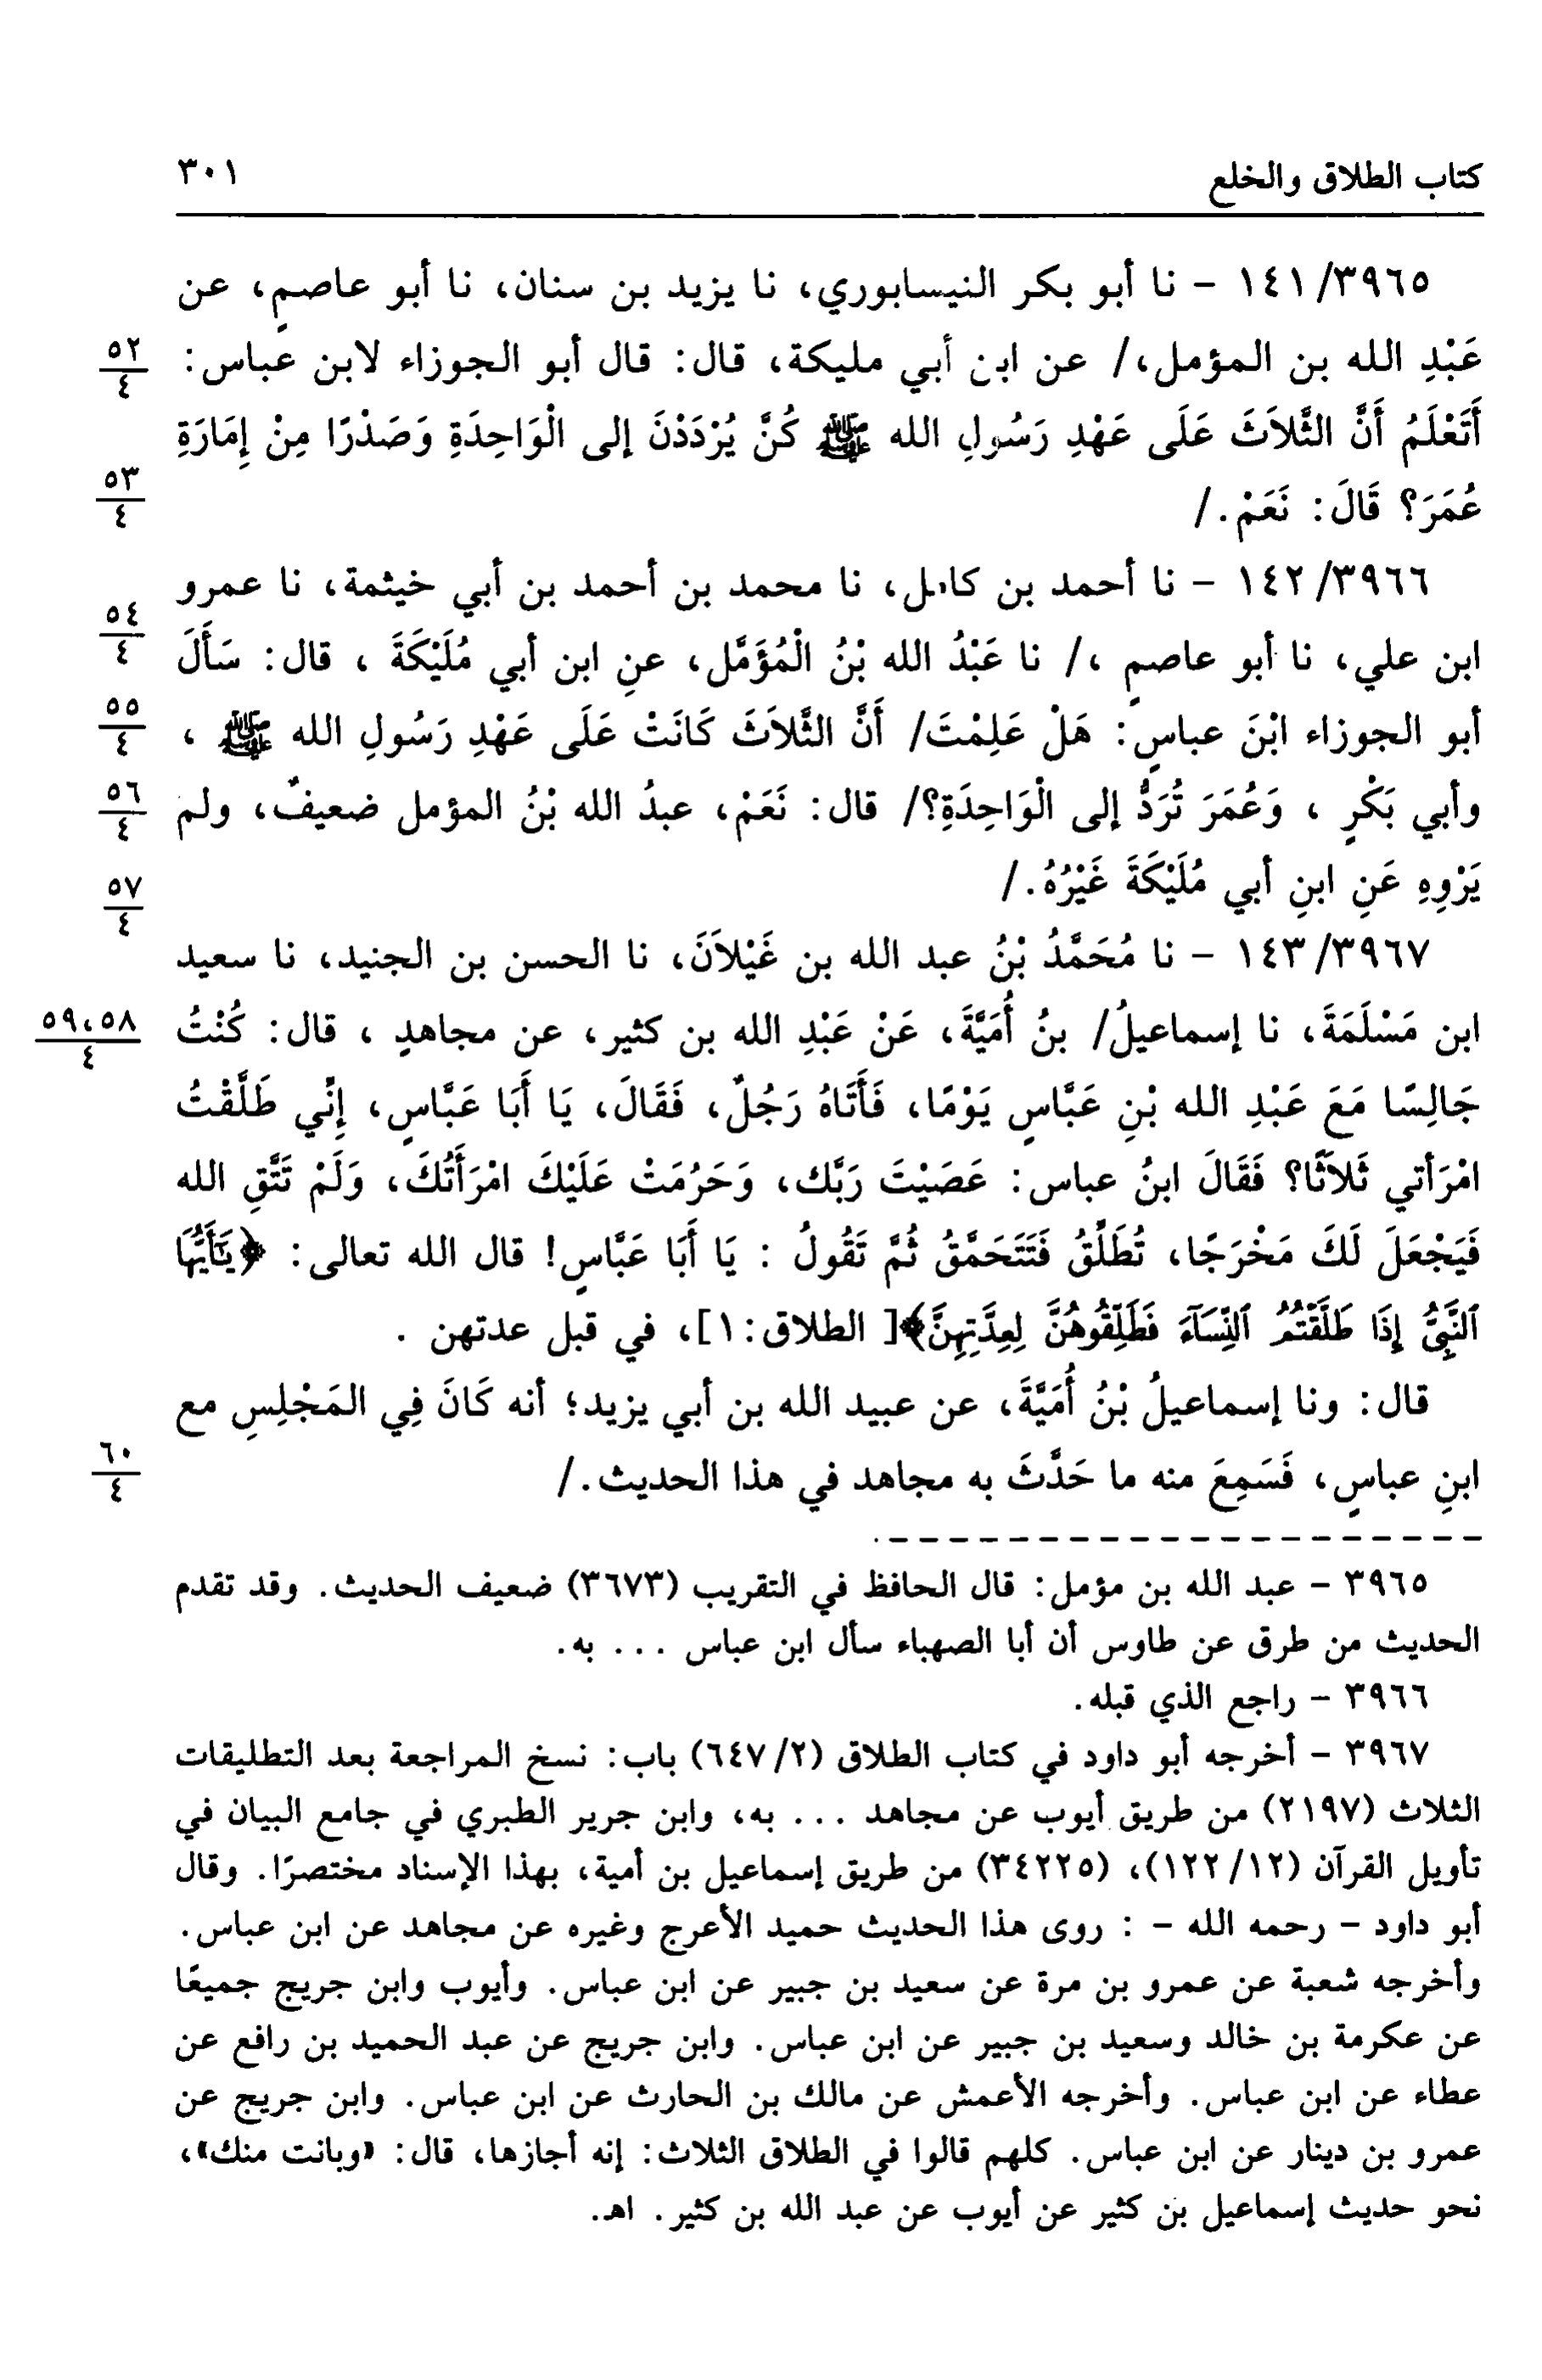 كتاب الطلاق والخلع ٣٠١
١٤١/٣٩٦٥ - نا أبو بكر النيسابوري، نا يزيد بن سنان، نا أبو عاصمٍ، عن
عَبْدِ الله بن المؤمل،/ عن ابن أبي مليكة، قال: قال أبو الجوزاء لابن عباس: ٥٢/٤
أَتَعْلَمُ أَنَّ الثَّلاَثَ عَلَى عَهْدِ رَسُولِ الله ﷺ كُنَّ يُرْدَدْنَ إلى الْوَاحِدَةِ وَصَدْرًا مِنْ إِمَارَةِ
عُمَرَ؟ قَالَ: نَعَمْ./ ٥٣/٤
١٤٢/٣٩٦٦ - نا أحمد بن كامل، نا محمد بن أحمد بن أبي خيثمة، نا عمرو
ابن علي، نا أبو عاصمٍ ،/ نا عَبْدُ الله بْنُ الْمُؤَمَّل، عنِ ابن أبي مُلَيْكَةَ ، قال: سَأَلَ ٥٤/٤
أبو الجوزاء ابْنَ عباسٍ: هَلْ عَلِمْتَ/ أَنَّ الثَّلاَثَ كَانَتْ عَلَى عَهْدِ رَسُولِ الله ﷺ ، ٥٥/٤
وأبي بَكْرٍ ، وَعُمَرَ تُرَدُّ إلى الْوَاحِدَةِ؟/ قال: نَعَمْ، عبدُ الله بْنُ المؤمل ضعيفٌ، ولم ٥٦/٤
يَرْوِهِ عَنِ ابنِ أبي مُلَيْكَةَ غَيْرُهُ./ ٥٧/٤
١٤٣/٣٩٦٧ - نا مُحَمَّدُ بْنُ عبد الله بن غَيْلاَنَ، نا الحسن بن الجنيد، نا سعيد
ابن مَسْلَمَةَ، نا إسماعيلُ/ بنُ أُمَيَّةَ، عَنْ عَبْدِ الله بن كثير، عن مجاهدٍ ، قال: كُنْتُ ٥٩،٥٨/٤
جَالِسًا مَعَ عَبْدِ الله بْنِ عَبَّاسٍ يَوْمًا، فَأَتَاهُ رَجُلٌ، فَقَالَ، يَا أَبَا عَبَّاسٍ، إِنِّي طَلَّقْتُ
امْرَأتي ثَلاَثًا؟ فَقَالَ ابنُ عباس: عَصَيْتَ رَبَّك، وَحَرُمَتْ عَلَيْكَ امْرَأَتُكَ، وَلَمْ تَتَّقِ الله
فَيَجْعَلَ لَكَ مَخْرَجًا، تُطَلِّقُ فَتَتَحَمَّقُ ثُمَّ تَقُولُ : يَا أَبَا عَبَّاسٍ! قال الله تعالى: ﴿يَٰٓأَيُّهَا
ٱلنَّبِىُّ إِذَا طَلَّقْتُمُ ٱلنِّسَآءَ فَطَلِّقُوهُنَّ لِعِدَّتِهِنَّ﴾[ الطلاق:١]، في قبل عدتهن .
قال: ونا إسماعيلُ بْنُ أُمَيَّةَ، عن عبيد الله بن أبي يزيد؛ أنه كَانَ فِي المَجْلِسِ مع
ابنِ عباسٍ، فَسَمِعَ منه ما حَدَّثَ به مجاهد في هذا الحديث./ ٦٠/٤
٣٩٦٥ - عبد الله بن مؤمل: قال الحافظ في التقريب (٣٦٧٣) ضعيف الحديث. وقد تقدم
الحديث من طرق عن طاوس أن أبا الصهباء سأل ابن عباس ... به.
٣٩٦٦ - راجع الذي قبله.
٣٩٦٧ - أخرجه أبو داود في كتاب الطلاق (٦٤٧/٢) باب: نسخ المراجعة بعد التطليقات
الثلاث (٢١٩٧) من طريق أيوب عن مجاهد ... به، وابن جرير الطبري في جامع البيان في
تأويل القرآن (١٢٢/١٢)، (٣٤٢٢٥) من طريق إسماعيل بن أمية، بهذا الإسناد مختصرًا. وقال
أبو داود - رحمه الله - : روى هذا الحديث حميد الأعرج وغيره عن مجاهد عن ابن عباس.
وأخرجه شعبة عن عمرو بن مرة عن سعيد بن جبير عن ابن عباس. وأيوب وابن جريج جميعًا
عن عكرمة بن خالد وسعيد بن جبير عن ابن عباس. وابن جريج عن عبد الحميد بن رافع عن
عطاء عن ابن عباس. وأخرجه الأعمش عن مالك بن الحارث عن ابن عباس. وابن جريج عن
عمرو بن دينار عن ابن عباس. كلهم قالوا في الطلاق الثلاث: إنه أجازها، قال: «وبانت منك»،
نحو حديث إسماعيل بن كثير عن أيوب عن عبد الله بن كثير. اهـ.